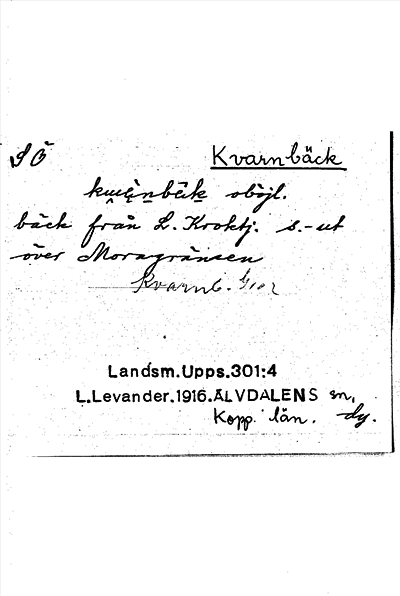 SÖ Kvarnbäck
oböjl.
bäck från L. Kroktj. s.-ut
över Moragränsen
Kvarnb.
Landsm.Upps.301:4
L.Levander.1916.ÄLVDALENS sn,
Kopp. län. dy.